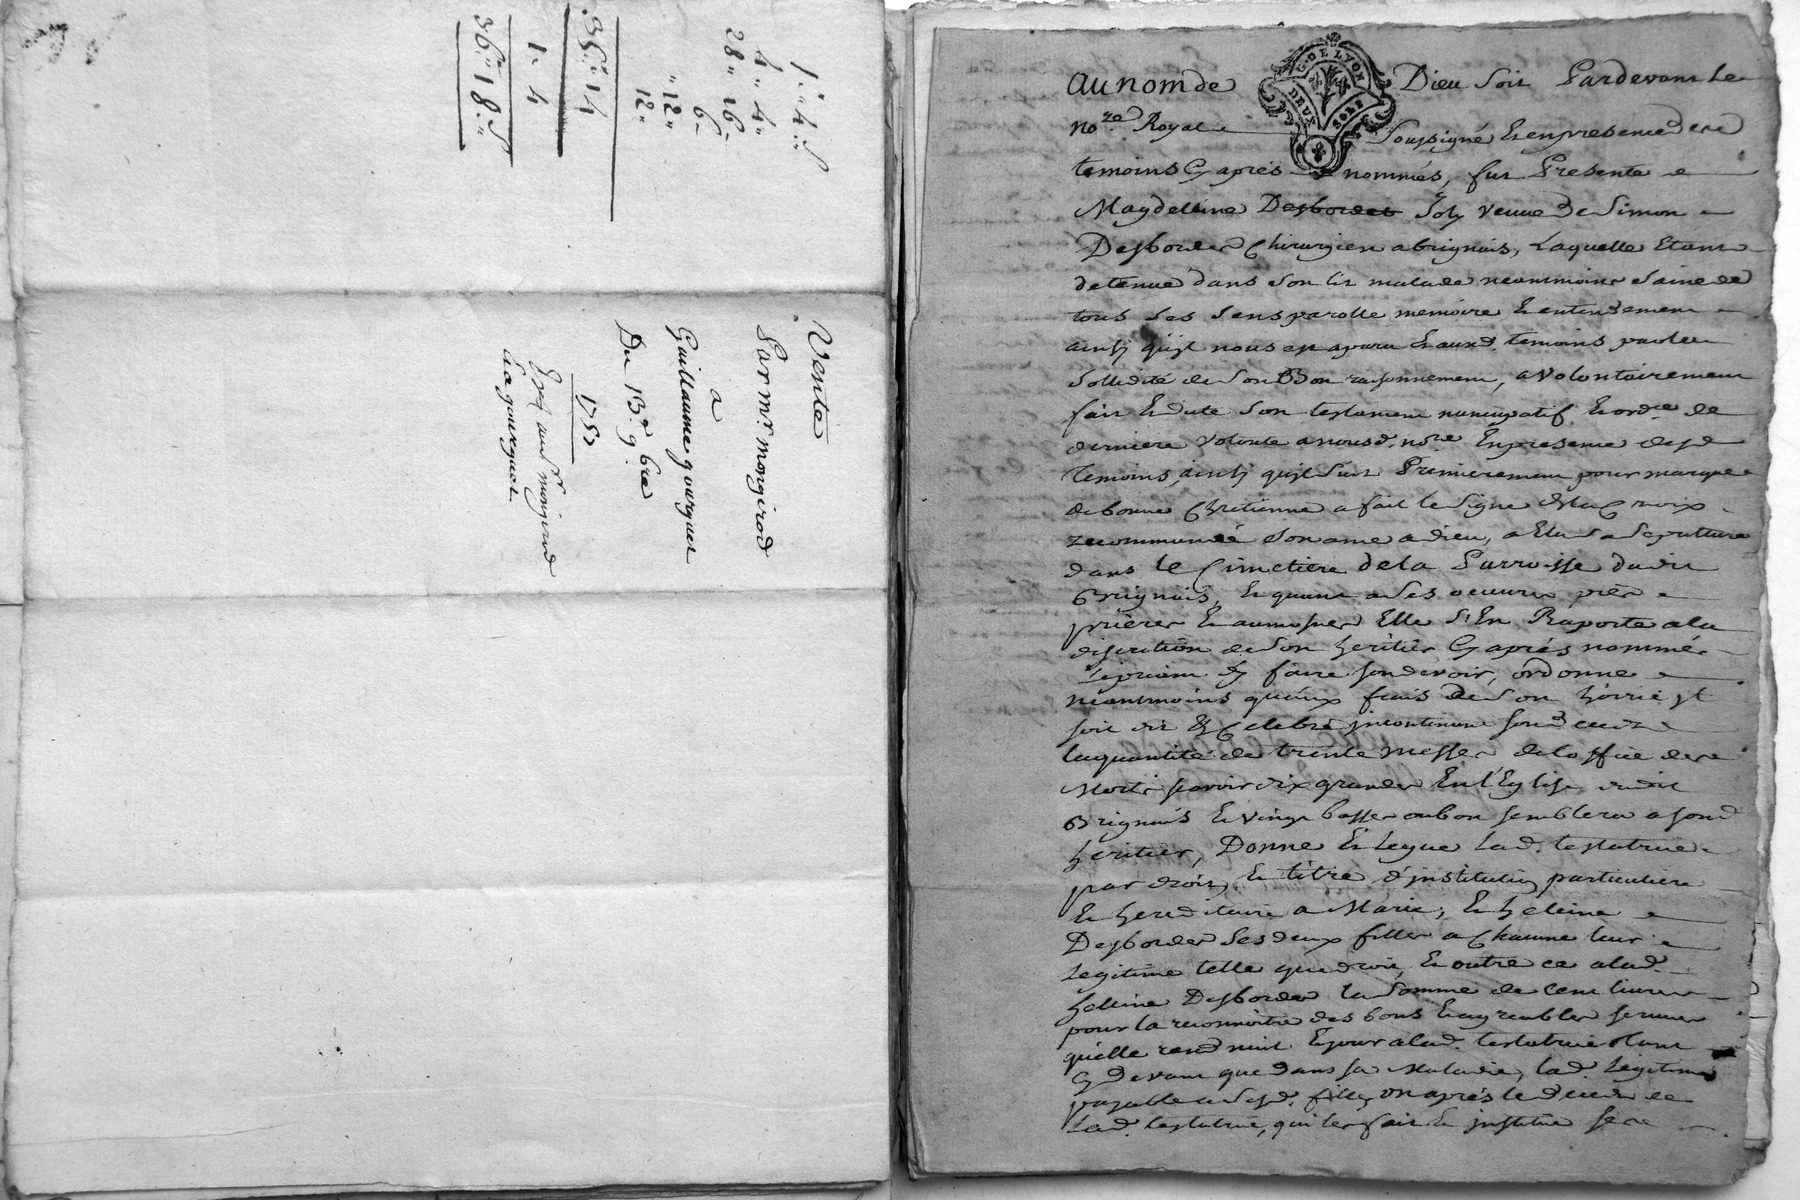 1" 4 s
4" 4"
28" 16"
6"
"12"
12"
35" 14
1" 4
36" 18 s
Vente
Par mr. mongirod
a
Guillaume gourguet
Du 13e 9bre
1752
Expn. audt. sr mongirod
la gourguet
G. DE LYON
DEUX SOLS
au nom de Dieu soit Pardevant Le
nore. Royal Soussigné Et en presence des
temoins Cy aprés nommés, fut Presente
Magdeleine Desbordes Joly veuve de Simon
Desbordes Chirurgien a brignais, Laquelle Etant
detenue dans son lit malade neantmoins saine de
tous ses sens parolle memoire Et entendement
ainsy quil nous est aparu Et auxd. temoins par la
sollidité de son Bon raisonnement, a volontairement
fait Et dicté son testament nuncupatif Et ordce de
derniere volonté a nousd. nore En presence desd
temoins, ainsy quil suit Premierement pour marque
de bonne Chretienne a fait le signe de la Croix
recommandé son ame a dieu, a Elu sa sepulture
dans le Cimetiere de la Parroisse dudit
Brignais, Et quant a ses oeuvres pies
prieres Et aumosnes Elle s'En Raporte a la
discretion de son heritier Cy aprés nommé
le priant d'y faire son devoir, ordonne
neantmoins qu'aux frais de son hoirie il
soit dit & Celebré incontinent son deceds
la quantité de trente messes de loffice des
Morts scavoir dix grandes En l'Eglise dudit
Brignais Et vingt basses ou bon semblera a sond
heritier, Donne Et Legue Lad. testatrice
par droit, Et titre d'institution particuliere
Et hereditaire a Marie, Et heleine
Desbordes ses deux filles a Chacune leur
Legitime telle que de droit, Et outre ce a lad.
helleine Desbordes la somme de Cent livres
pour la reconnoitre des bons Et agreables services
quelle rend nuit Et jour a lad. testatrice tant
Cy devant que dans sa Maladie, lad. Legitime
payable a sesd. filles, un an aprés le deceds de
Lad. testatrice, qui les fait Et institue ses